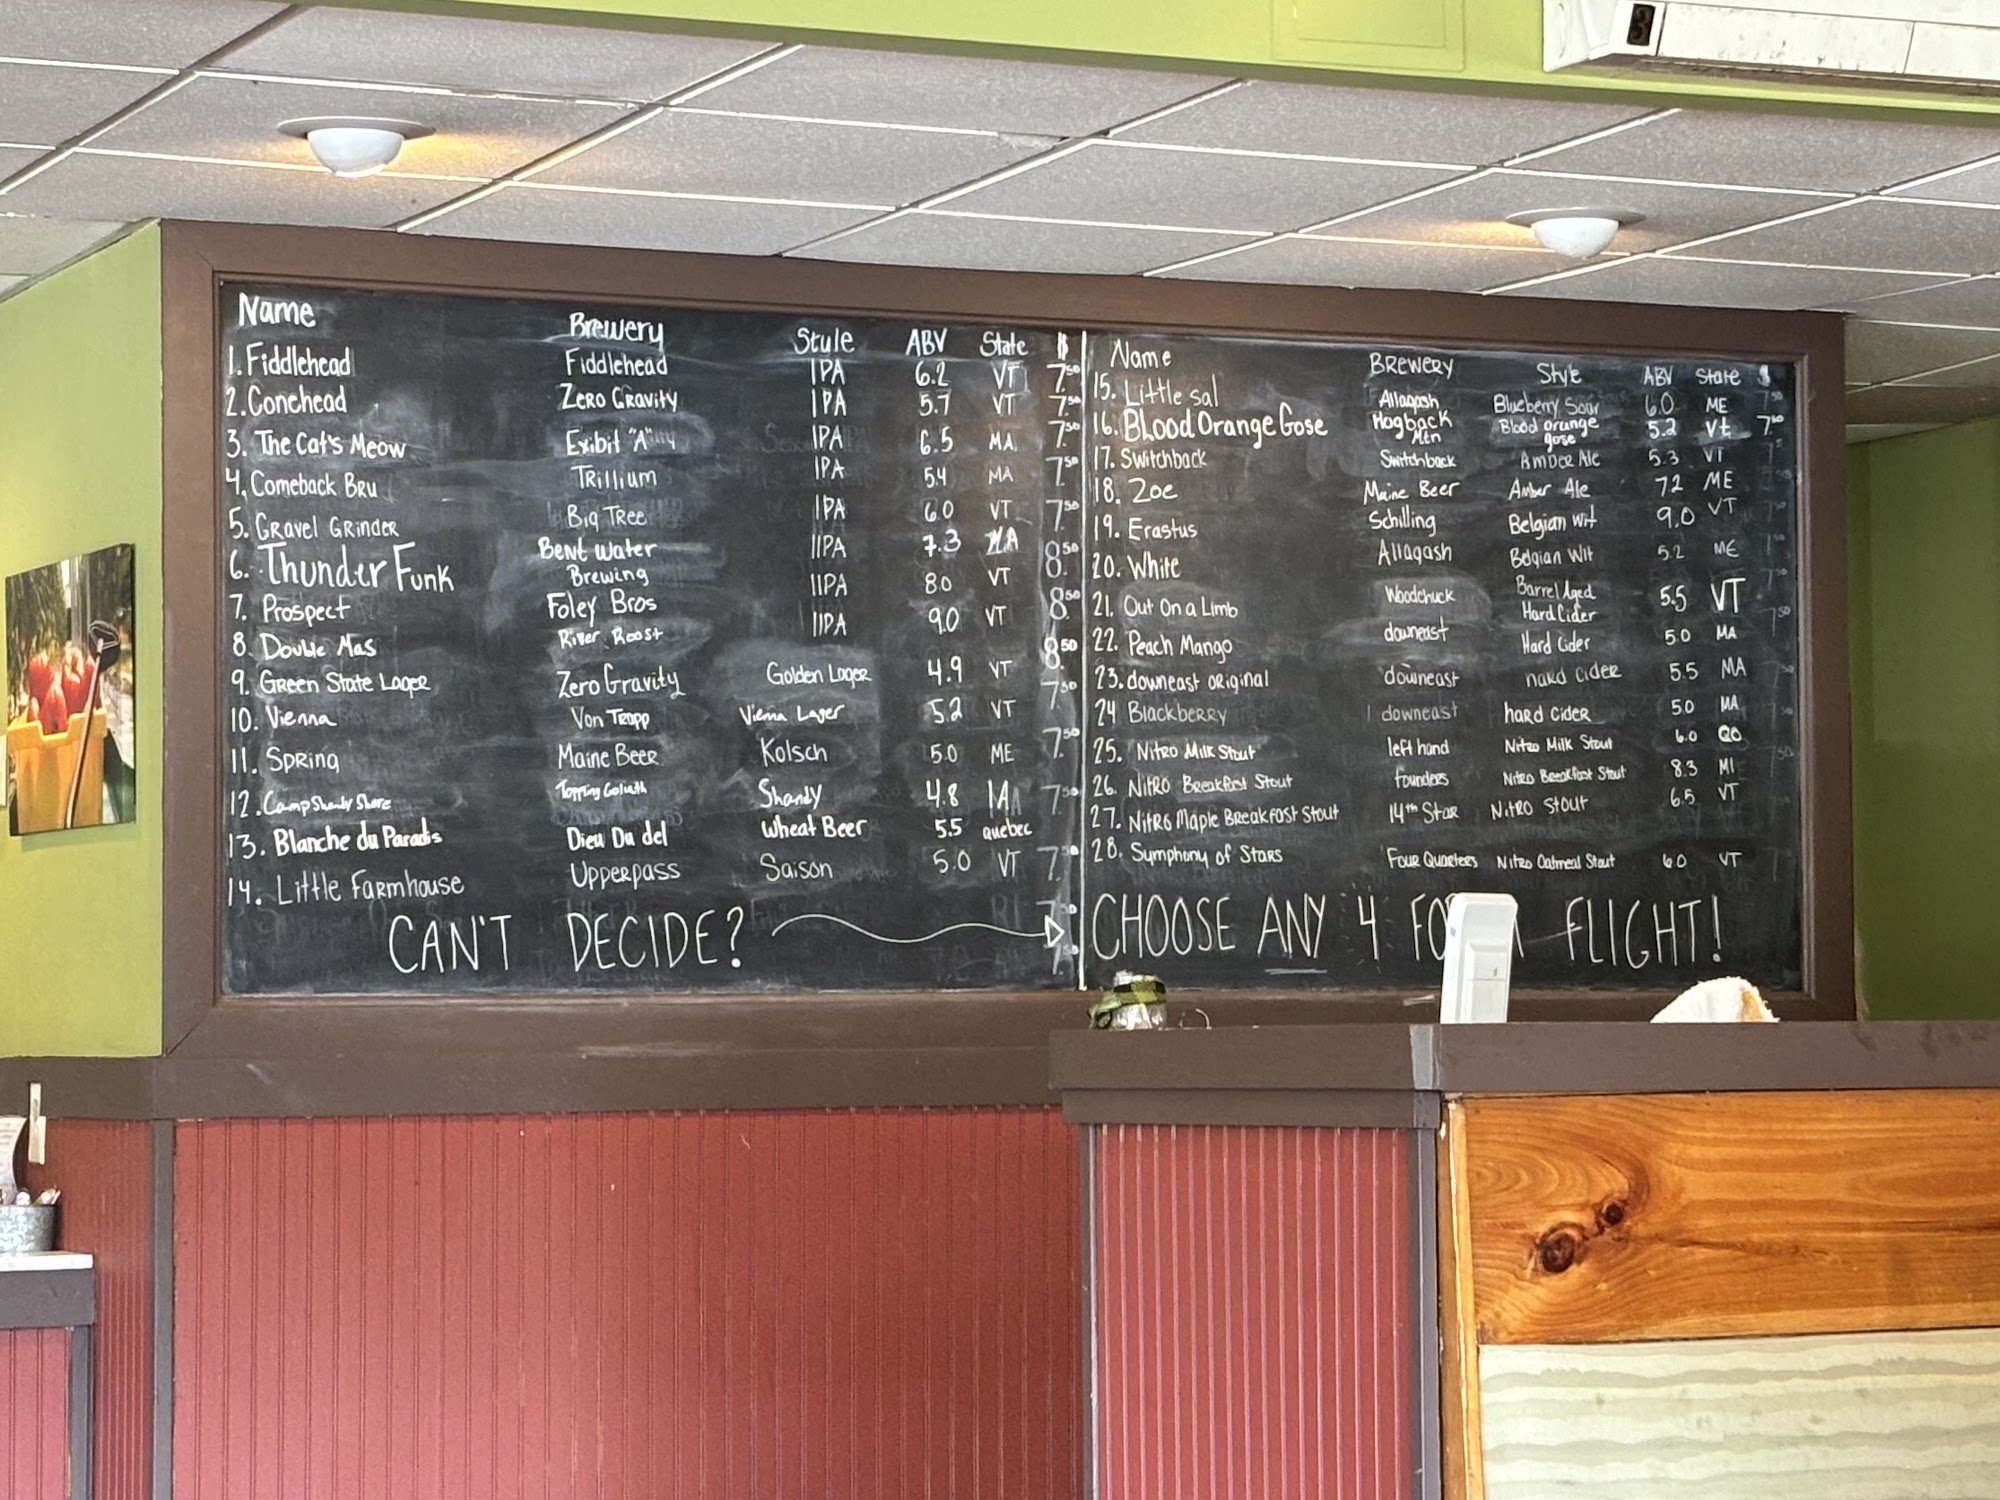 Name Brewery Style ABV State $
1. Fiddlehead Fiddlehead IPA 6.2 VT 7.50
2. Conehead Zero Gravity IPA 5.7 VT 7.50
3. The Cat's Meow Exibit "A" IPA 6.5 MA 7.50
4. Comeback Bru Trillium IPA 5.4 MA 7.50
5. Gravel Grinder Big Tree IPA 6.0 VT 7.50
6. Thunder Funk Bent Water Brewing IIPA 7.3 MA 8.50
7. Prospect Foley Bros IIPA 8.0 VT 8.50
8. Double Nas River Roost IIPA 9.0 VT 8.50
9. Green State Lager Zero Gravity Golden Lager 4.9 VT 7.50
10. Vienna Von Trapp Vienna Lager 5.2 VT 7.50
11. Spring Maine Beer Kolsch 5.0 ME 7.50
12. Camp Shandy Shore Toppling Goliath Shandy 4.8 IA
13. Blanche du Paradis Dieu Du del Wheat Beer 5.5 quebec 7.50
14. Little Farmhouse Upperpass Saison 5.0 VT 7.50
CAN'T DECIDE?
Name Brewery Style ABV State $
15. Little Sal Allagash Blueberry Sour 6.0 ME 7.50
16. Blood Orange Gose Hogback Mtn Blood orange gose 5.2 Vt 7.50
17. Switchback Switchback Amber Ale 5.3 VT
18. Zoe Maine Beer Amber Ale 7.2 ME
19. Erastus Schilling Belgian Wit 9.0 VT
20. White Allagash Belgian Wit 5.2 ME
21. Out On a Limb Woodchuck Barrel Aged Hard Cider 5.5 VT
22. Peach Mango downeast Hard Cider 5.0 MA
23. downeast original downeast hard cider 5.5 MA
24 Blackberry downeast hard cider 5.0 MA
25. Nitro Milk Stout left hand Nitro Milk Stout 6.0
26. Nitro Breakfast Stout founders Nitro Breakfast Stout 8.3 MI
27. Nitro Maple Breakfast Stout 14th Star Nitro Stout 6.5 VT
28. Symphony of Stars Four Quarters Nitro Oatmeal Stout 6.0 VT
CHOOSE ANY 4 FO FLIGHT!